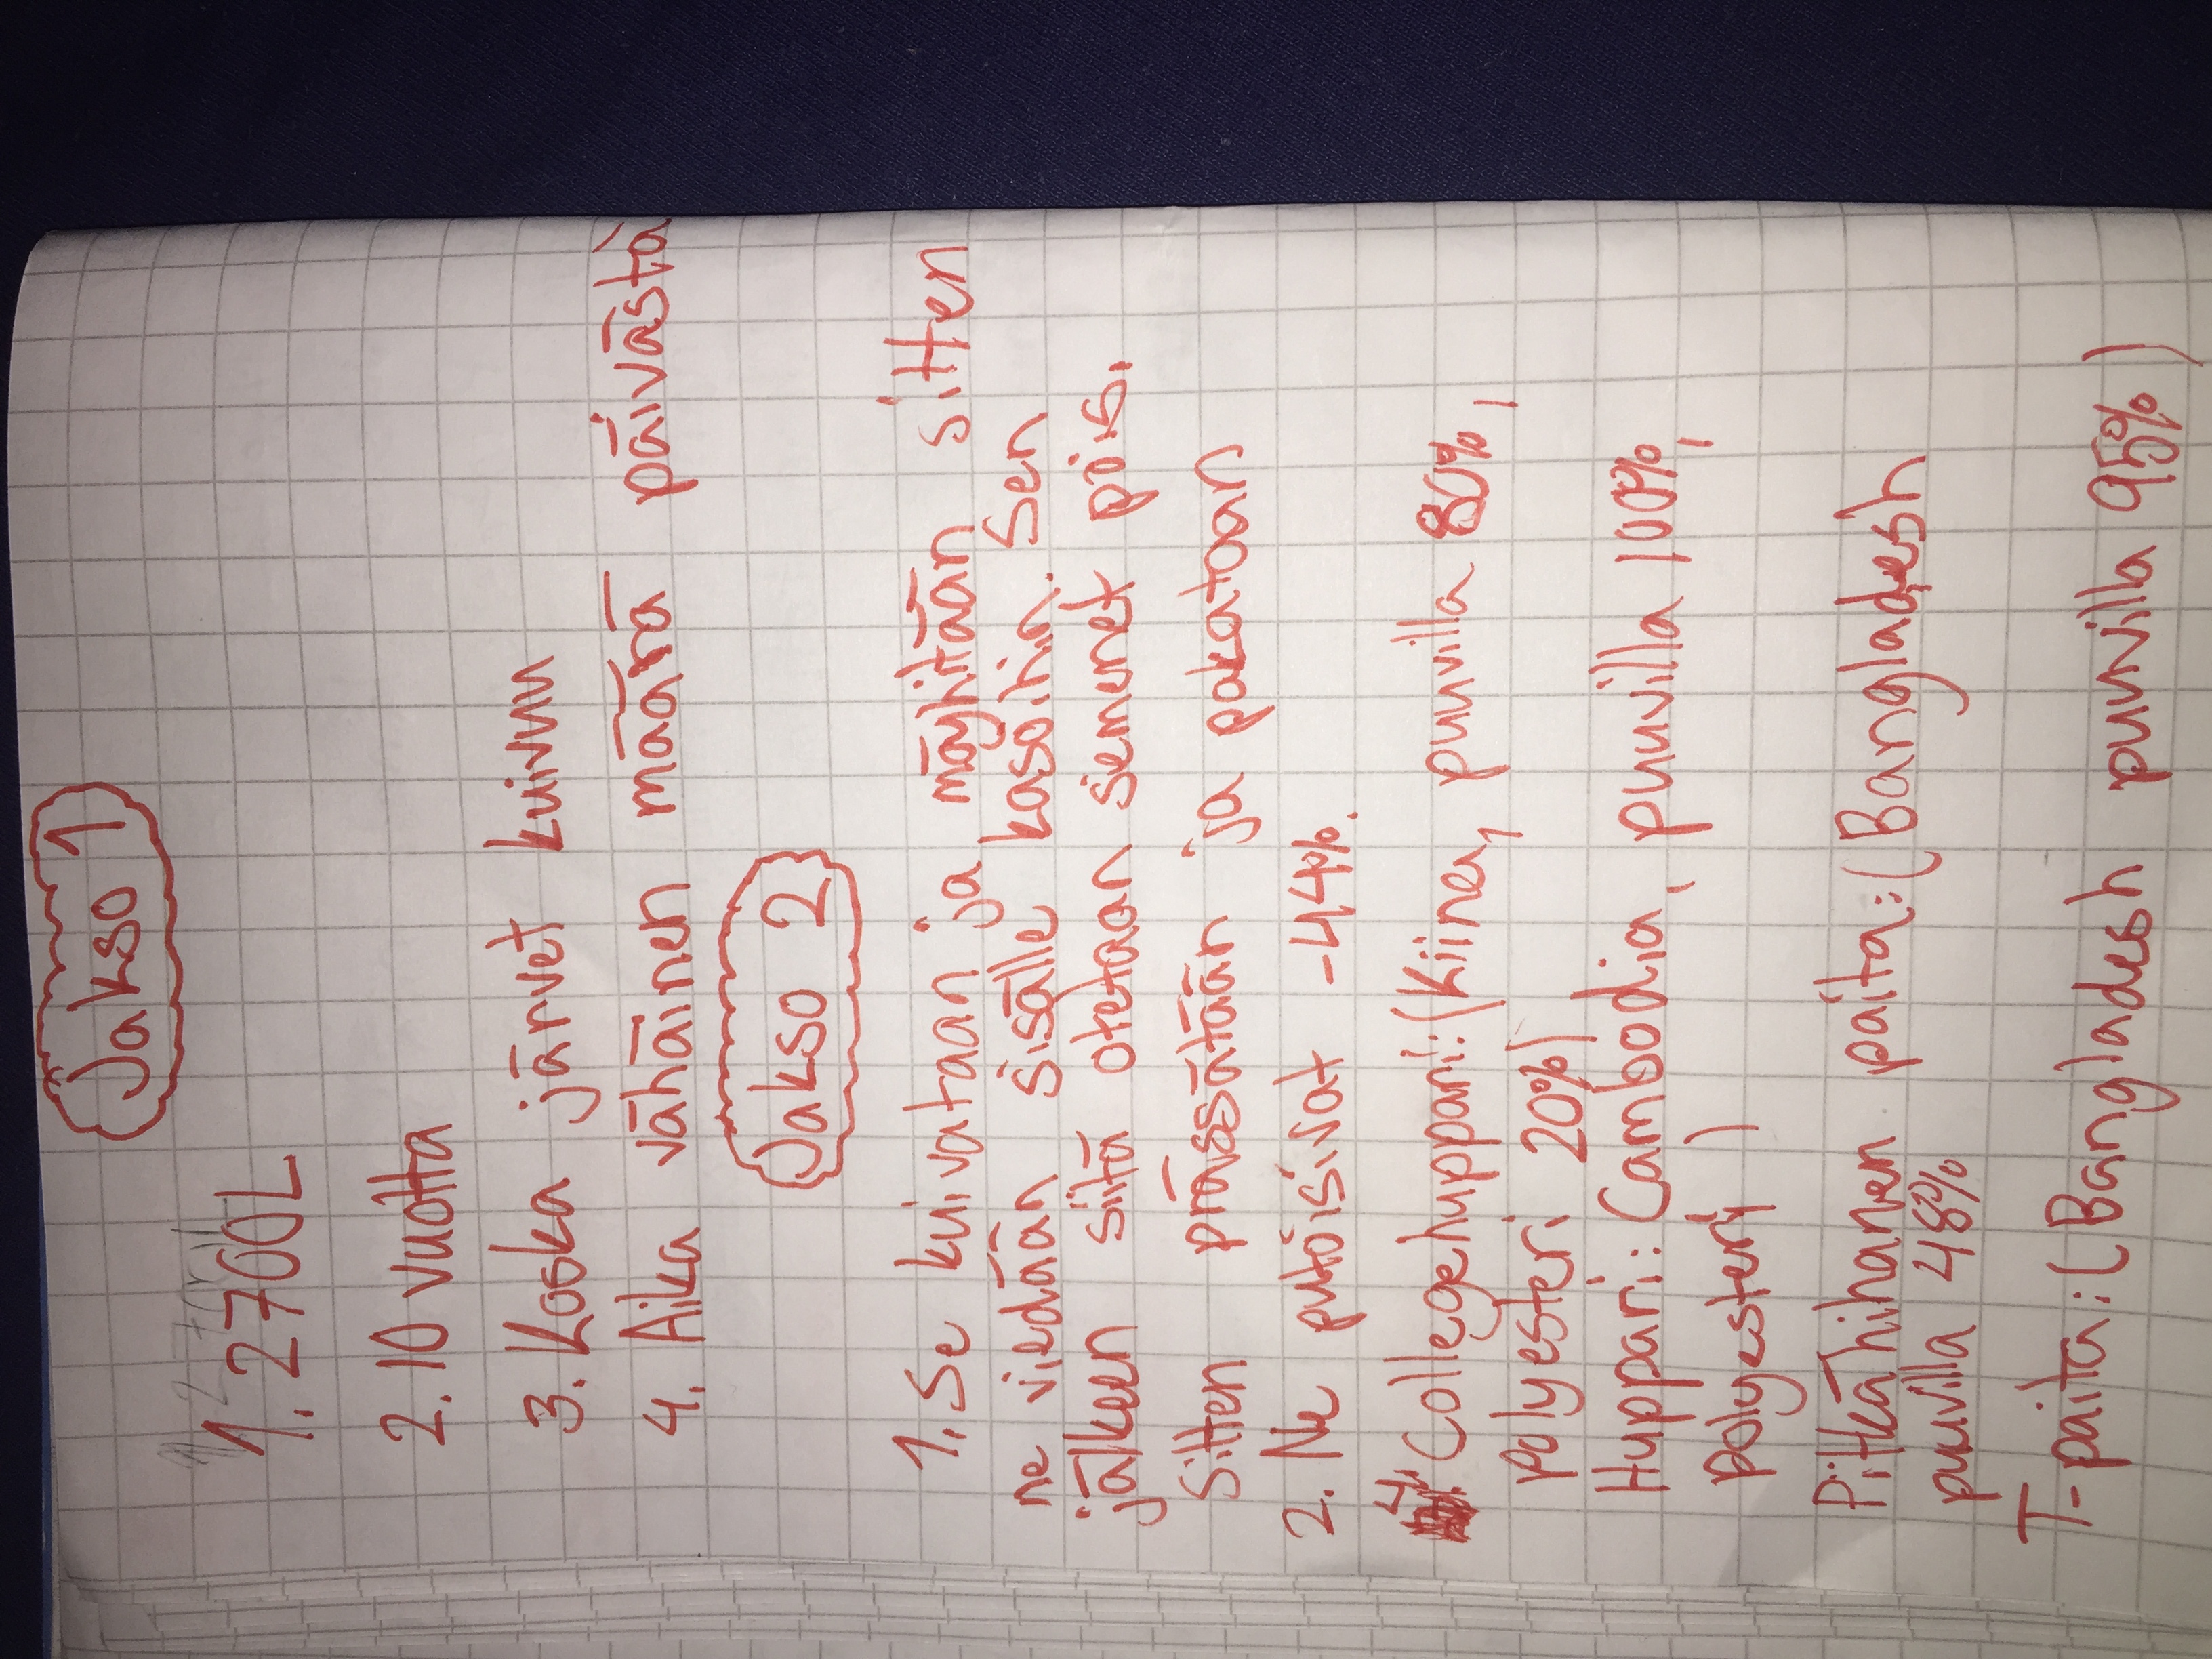 Jakso 1
1. 2700L
2. 10 vuotta
3. Koska järvet kuivuu
4. Aika vähäinen määrä päivästä
Jakso 2
1. Se kuivataan ja mäyhitään sitten
ne viedään sisälle kasoihin. Sen
jälkeen siitä otetaan siemenet pois.
Sitten prässätään ja pakataan
2. Ne putoisivat -44%.
4. Collegehuppari: (Kiina, puuvilla 80%,
polyesteri 20%)
Huppari: Cambodia, puuvilla 100%,
polyesteri)
Pitkähihanen paita: (Bangladesh
puuvilla 48%
T-paita: (Bangladesh puuvilla 95%)